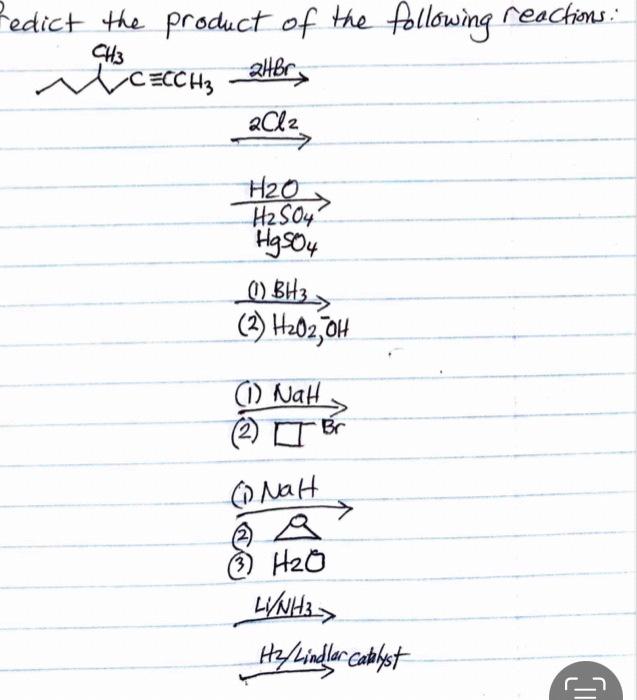 redict the product of the following reactions:
CH3
C≡CCH3 2HBr
2Cl2
H2O
H2SO4
HgSO4
(1) BH3
(2) H2O2, ⁻OH
(1) NaH
(2) Br
(1) NaH
(2) O
(3) H2O
Li/NH3
H2/Lindlar Catalyst